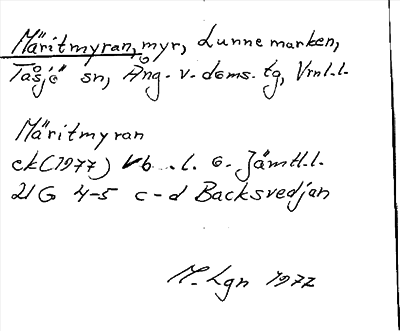 Märitmyran, myr, Lunnemarken,
Tåsjö sn, Ång. v. doms. tg, Vrnl.l.
Märitmyran
ek (1977) Vb. l. o. Jämtl.l.
21 G 4-5 c-d Backsvedjan
M. Lgn 1977